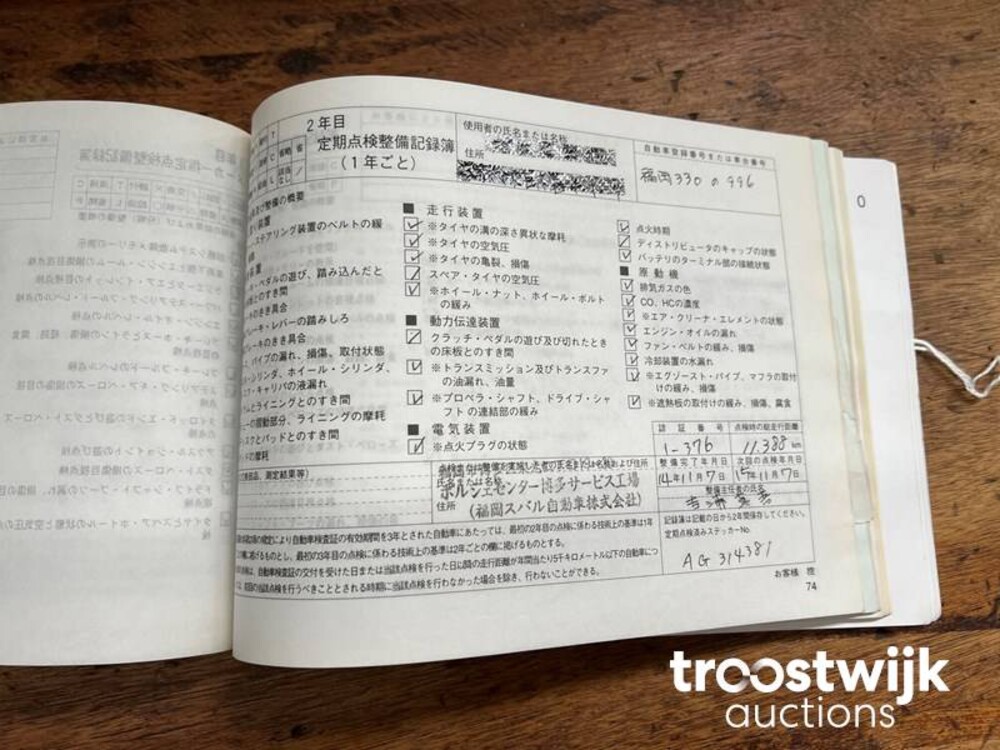 2年目
定期点検整備記録簿
(1年ごと)
使用者の氏名または名称
住所
自動車登録番号または車台番号
福岡 330 の 996
及び整備の概要
装置
ステアリング装置のベルトの緩
装置
・ペダルの遊び、踏み込んだと
とのすき間
のきき具合
ーキ・レバーの踏みしろ
ーキのきき具合
、パイプの漏れ、損傷、取付状態
・シリンダ、ホイール・シリンダ、
ク・キャリパの液漏れ
ムとライニングとのすき間
ーの摺動部分、ライニングの摩耗
スクとパッドとのすき間
ドの摩耗
■ 走行装置
※タイヤの溝の深さ異状な摩耗
※タイヤの空気圧
※タイヤの亀裂、損傷
スペア・タイヤの空気圧
※ホイール・ナット、ホイール・ボルト
の緩み
■ 動力伝達装置
クラッチ・ペダルの遊び及び切れたとき
の床板とのすき間
※トランスミッション及びトランスファ
の油漏れ、油量
※プロペラ・シャフト、ドライブ・シャ
フトの連結部の緩み
■ 電気装置
※点火プラグの状態
点火時期
ディストリビュータのキャップの状態
バッテリのターミナル部の接続状態
■ 原動機
排気ガスの色
CO、HCの濃度
※エア・クリーナ・エレメントの状態
エンジン・オイルの漏れ
ファン・ベルトの緩み、損傷
冷却装置の水漏れ
※エグゾースト・パイプ、マフラの取付
けの緩み、損傷
※遮熱板の取付けの緩み、損傷、腐食
認証番号
点検時の総走行距離
1-376
11,388 km
整備完了年月日
次回の点検年月日
14年11月7日
15年11月7日
整備主任者の氏名
測定結果等)
点検または整備を実施した者の氏名または名称および住所
氏名または名称
ポルシェセンター博多サービス工場
住所
(福岡スバル自動車株式会社)
記録簿は記載の日から2年間保存してください。
定期点検済みステッカーNo.
AG 314381
の規定により自動車検査証の有効期間を3年とされた自動車にあたっては、最初の2年目の点検に係わる技術上の基準は1年
に掲げるものとし、最初の3年目の点検に係わる技術上の基準は2年ごとの欄に掲げるものとする。
は、自動車検査証の交付を受けた日または当該点検を行った日以降の走行距離が年間当り5千キロメートル以下の自動車につ
、前回の当該点検を行うべきこととされる時期に当該点検を行わなかった場合を除き、行わないことができる。
お客様 控
74
O
troostwijk
auctions